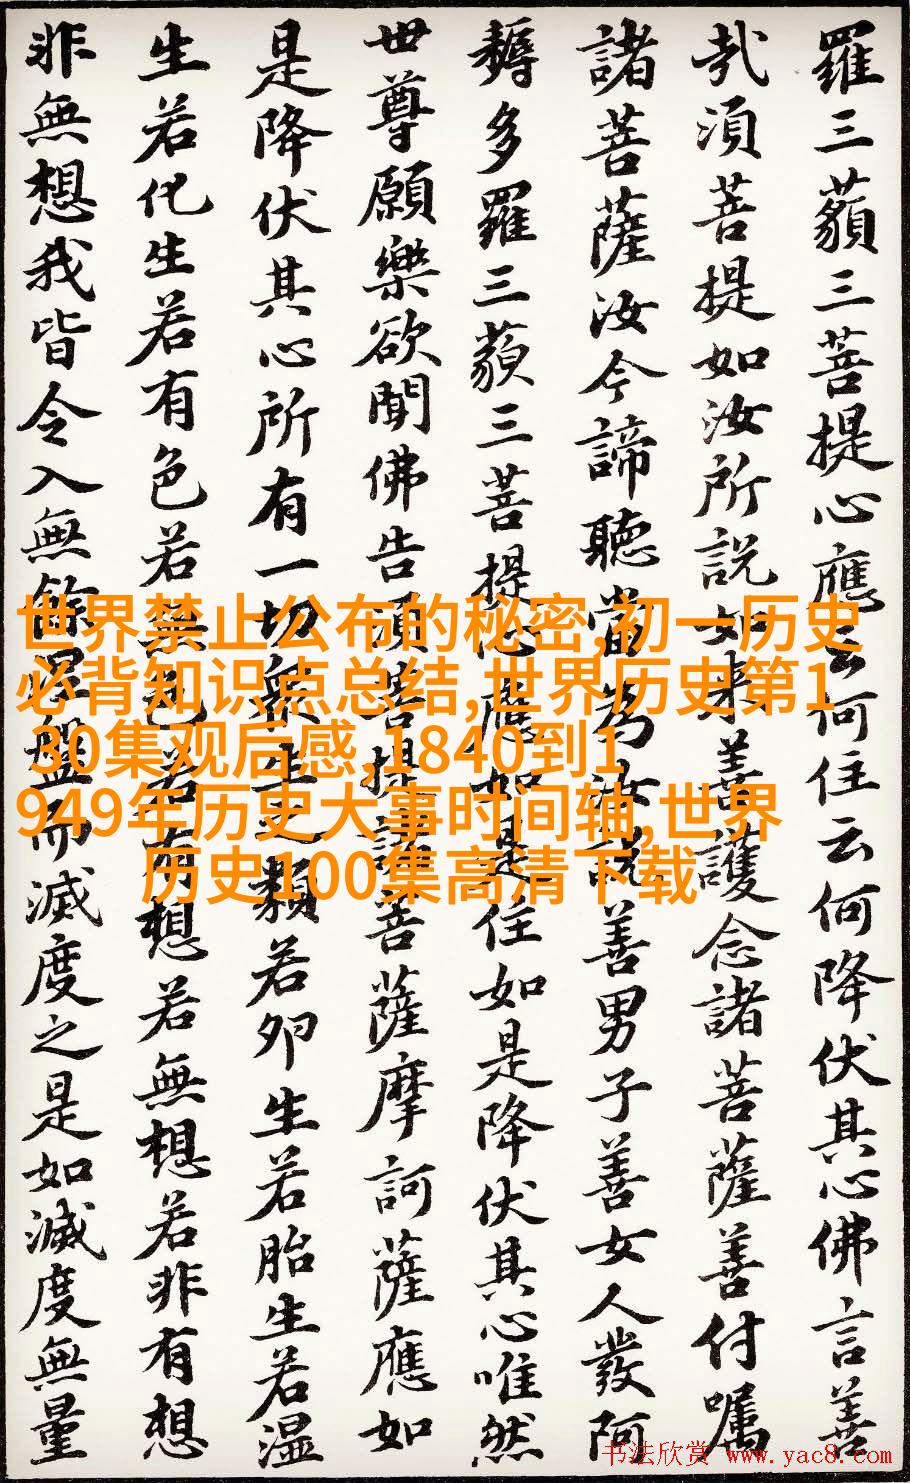 羅三藐三菩提心應云何住云何降伏其心佛言善
哉須菩提如汝所説如来善護念諸菩薩善付嘱
諸菩薩汝今諦聽當為汝説善男子善女人發阿
耨多羅三藐三菩提心應如是住如是降伏其心唯然
世尊願樂欲聞佛告須菩提諸菩薩摩訶薩應如
是降伏其心所有一切衆生之類若卵生若胎生若湿
生若化生若有色若無色若有想若無想若非有想
非無想我皆令入無餘涅盤而滅度之是如滅度無量
世界禁止公布的秘密,初一历史
必背知识点总结,世界历史第1
30集观后感,1840到1
949年历史大事时间轴,世界
历史100集高清下载
书法欣赏 www.yac8.com